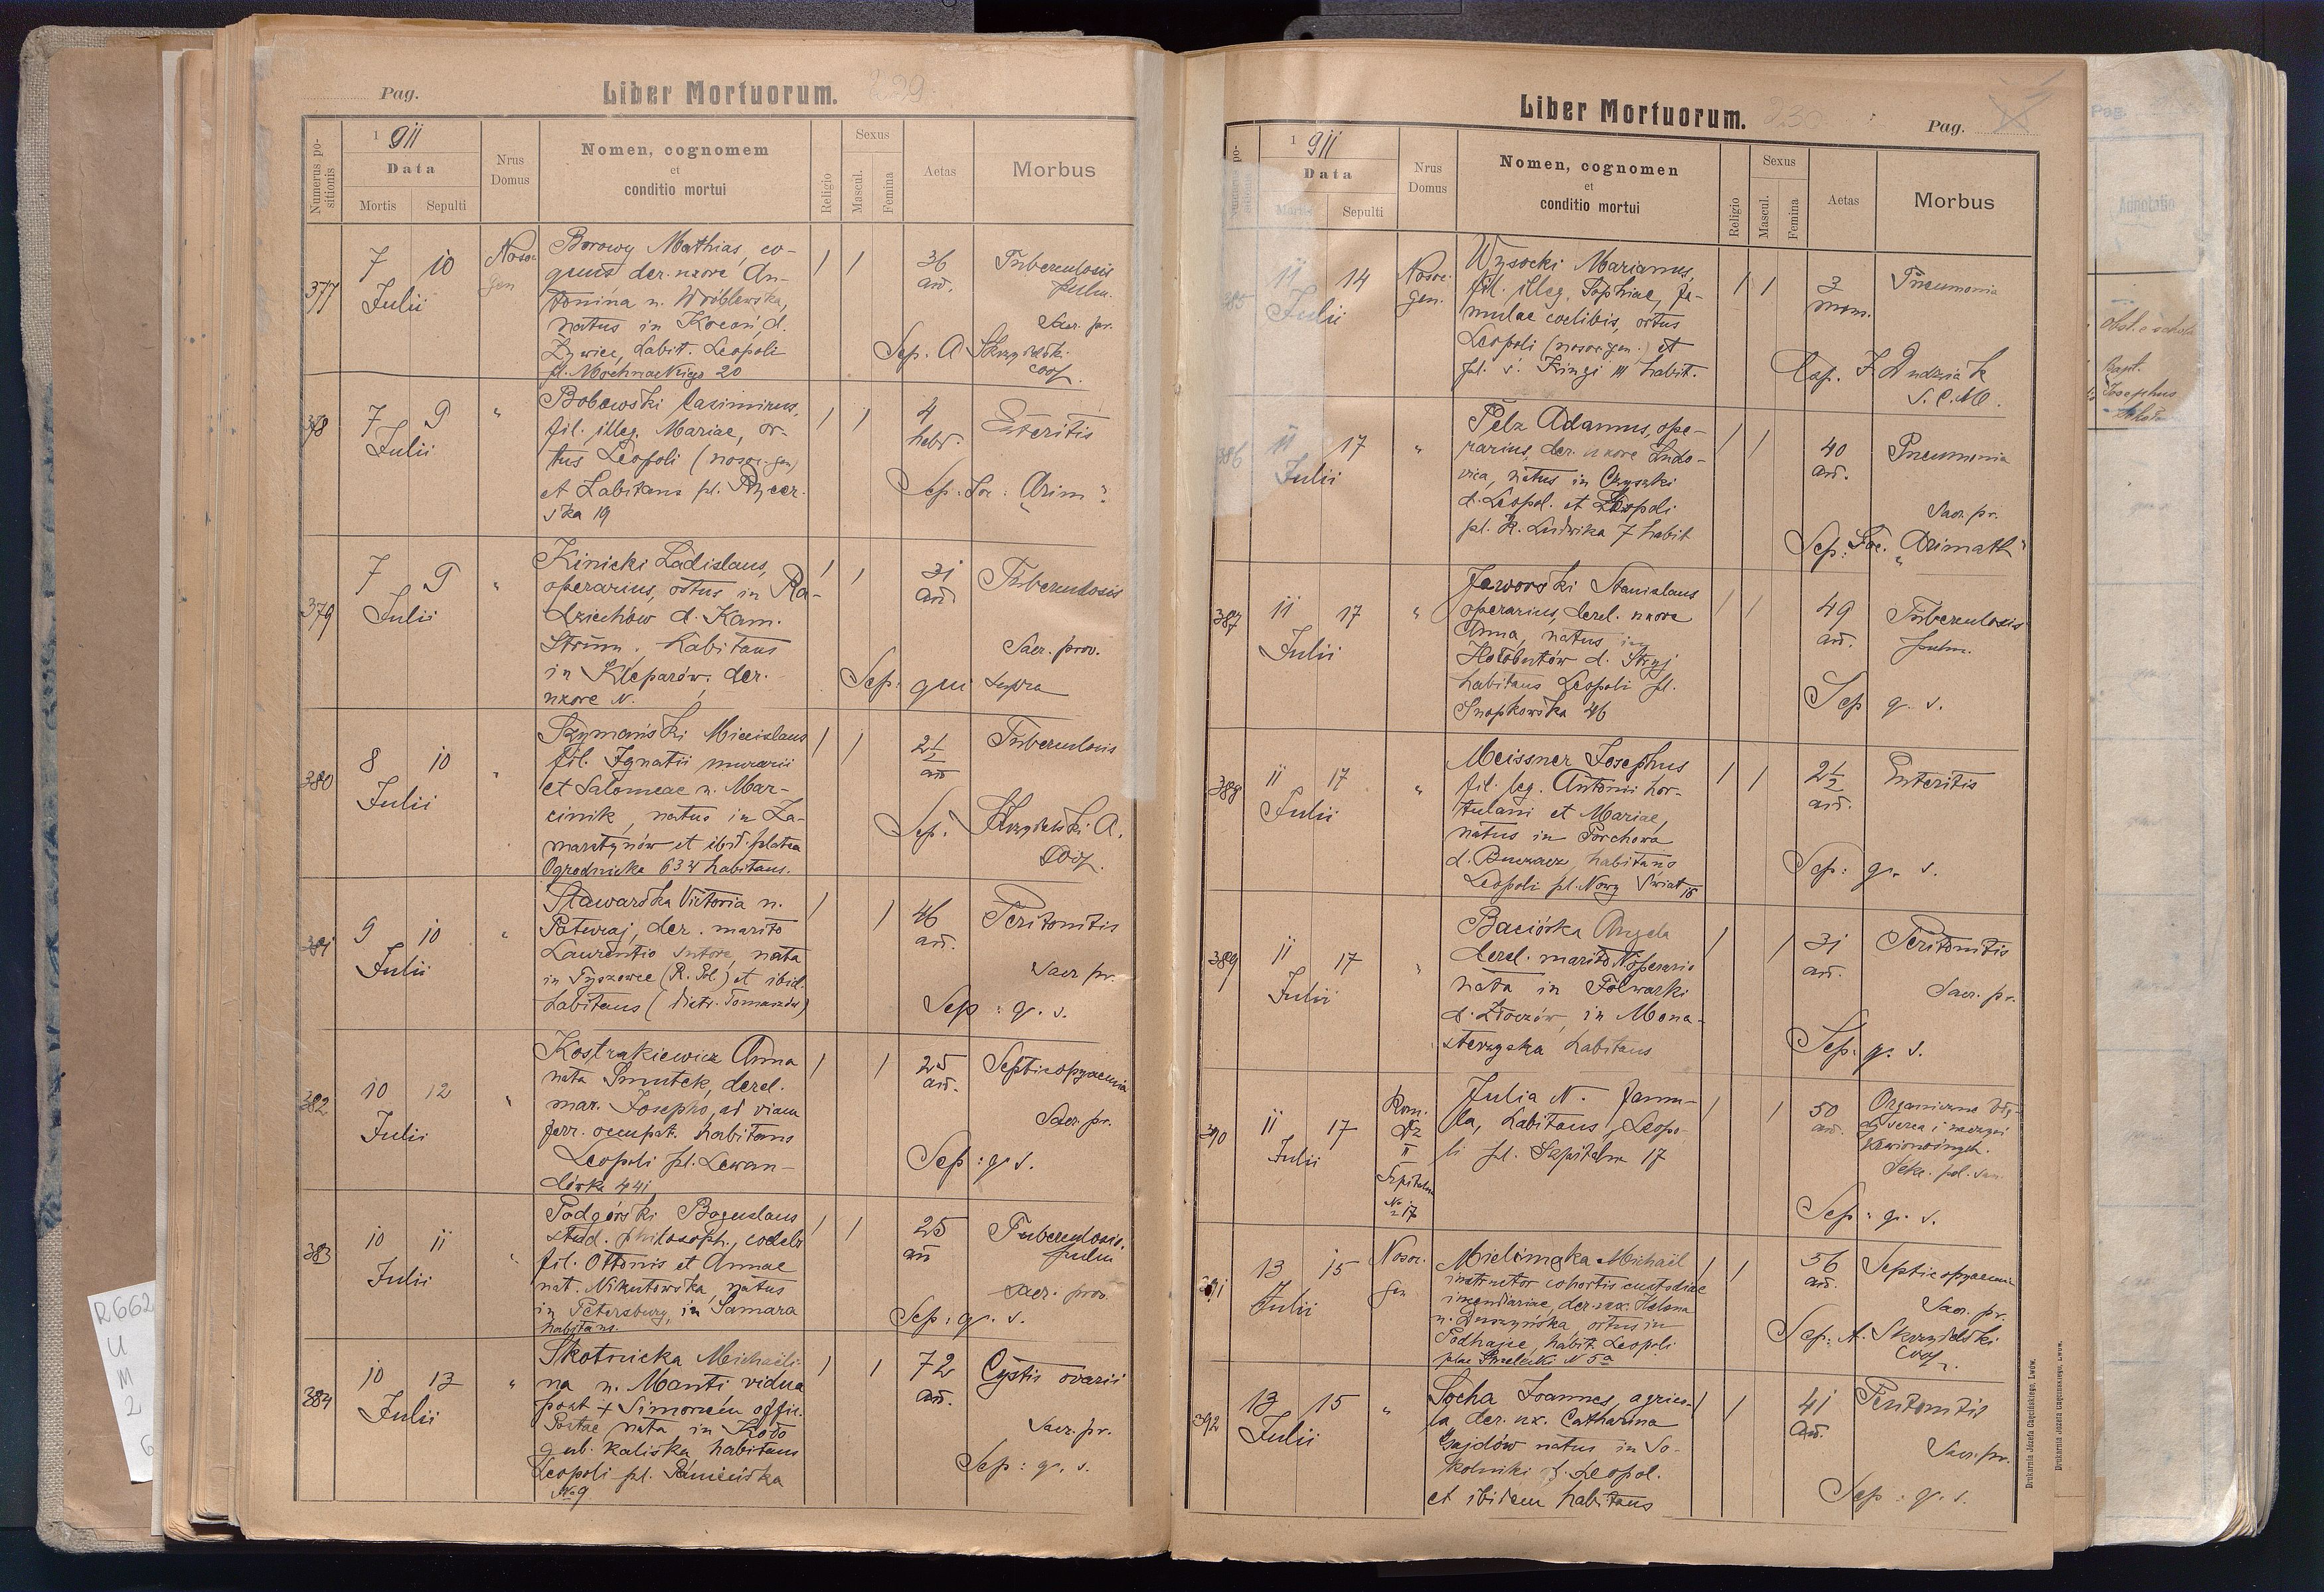 Pag.
Liber Mortuorum.
229
Numerus positionis
1911
Data
Mortis
Sepulti
Nrus Domus
Nomen, cognomem
et
conditio mortui
Religio
Sexus
Mascul.
Femina
Aetas
Morbus
377
7 10
Julii
Nosoc.
gen
Borowy Mathias, co-
quus der. uxore An-
tonina n. Wróblewska,
natus in Kocoń, d.
Żywiec, habit. Leopoli
pl. Mochnackiego 20
36
an.
Tuberculosis
pulm.
Sacr. pr.
Sep. A Skrzydelski
coop.
378
7 9
Julii
"
Bobowski Casimirus,
fil. illeg. Mariae, or-
tus Leopoli (nosoc. gen)
et habitans pl. Pijar-
ska 19
4
hebd.
Enteritis
Sep: Soc: Arim:
379
7 9
Julii
"
Kinicki Ladislaus,
operarius, ortus in Ra-
dziechów d. Kam.
Strum. habitans
in Kleparów, der.
uxore N.
31
an
Tuberculosis
Sacr. prov.
Sep: qui supra
380
8 10
Julii
"
Szymański Miecislaus
fil. Ignatii murarii
et Salomeae n. Mar-
cinik, natus in Za-
marstynów et ibid. platea
Ogrodnicka 634 habitans.
2 1/2
an
Tuberculosis
Sep. Skrzydelski A.
coop.
381
9 10
Julii
"
Stawarska Victoria n.
der. marito
Laurentio sutore, nata
in Tyszowce (R. Pol) et ibid.
habitans (distr. Tomaszów)
46
an.
Peritonitis
Sacr. pr.
Sep: q. s.
382
10 12
Julii
"
Kostrakiewicz Anna
nata Smutek, derel.
mar. Josepho, ad viam
ferr. occupat. habitans
Leopoli pl. Lewan-
dówka 441
25
an.
Septicopyaemia
Sacr. pr.
Sep: q. s.
383
10 11
Julii
"
Podgórski Boguslaus
stud. philosoph., coelebs
fil. Ottonis et Annae
nat. Nikutowska, natus
in Petersburg, in Samara
habitans.
25
an
Tuberculosis
pulm
Sacr. prov.
Sep: q. s.
384
10 13
Julii
"
Skotnicka Michaëli-
na n. Manti vidua
post + Simonem offic.
Postae, nata in Koło
gub. Kaliska habitans
Leopoli pl.
No 9
72
an.
Cystis ovarii
Sacr. pr.
Sep: q. s.
Liber Mortuorum.
230
Pag.
1911
Data
Mortis
Sepulti
Nrus Domus
Nomen, cognomen
et
conditio mortui
Religio
Sexus
Mascul.
Femina
Aetas
Morbus
385
11 14
Julii
Nosoc.
gen.
Wysocki Marianus,
fil. illeg. Sophiae, fa-
mulae coelibis, ortus
Leopoli (nosoc. gen.) et
pl. s. Kingi 111 habit.
3
mens.
Pneumonia
Cap. F. Dudziak
S. C. M.
386
11 17
Julii
"
Pelz Adamus, ope-
rarius, der. uxore Ludo-
vica, natus in Czyszki
d. Leopol. et Leopoli
pl. K. Ludwika 7 habit
40
an.
Pneumonia
Sacr. pr.
Sep: Soc. Arimath
387
11 17
Julii
"
Jaworski Stanislaus
operarius, derel. uxore
Anna, natus in
Hołobutów d. Stryj
habitans Leopoli pl.
Snopkowska 46
49
an.
Tuberculosis
pulm.
Sep q. s.
388
11 17
Julii
"
Meissner Josephus
fil. leg. Antonii hor-
tulani et Mariae,
natus in Porchowa
d. Buczacz, habitans
Leopoli pl. Nowy Świat 18
2 1/2
an.
Enteritis
Sep: q. s.
389
11 17
Julii
"
Baciórka Angela
derel. marito N. operario
nata in Folwarki
d. Złoczów, in Mona-
sterzyska habitans
31
an.
Peritonitis
Sacr. pr.
Sep: q. s.
390
11 17
Julii
Kom.
Dz
II
Szpitalna
No 17
Julia N. famu-
la, habitans Leopo-
li pl. Szpitalna 17
50
an.
Organiczna
serca i naczyń
krwionośnych.
Sekc. pol. san.
Sep: q. s.
391
13 15
Julii
Nosoc.
gen
Michaël
instructor cohortis custodiae
incendiariae, der. ux. Helena
ortus in
Podhajce, habit. Leopoli
plac Strzelecki N 5a
56
an.
Septicopyaemia
Sacr. pr.
Sep: A. Skrzydelski
coop.
392
13 15
Julii
"
Socha Joannes, agrico-
la, der. ux. Catharina
Gajdów natus in So-
kolniki d. Leopol.
et ibidem habitans
41
an.
Peritonitis
Sacr. pr.
Sep: q. s.
Drukarnia Józefa Chęcińskiego, Lwów.
Drukarnia Józefa Chęcińskiego, Lwów.
Pag.
Annotatio
Josephus
R662
U
M
2